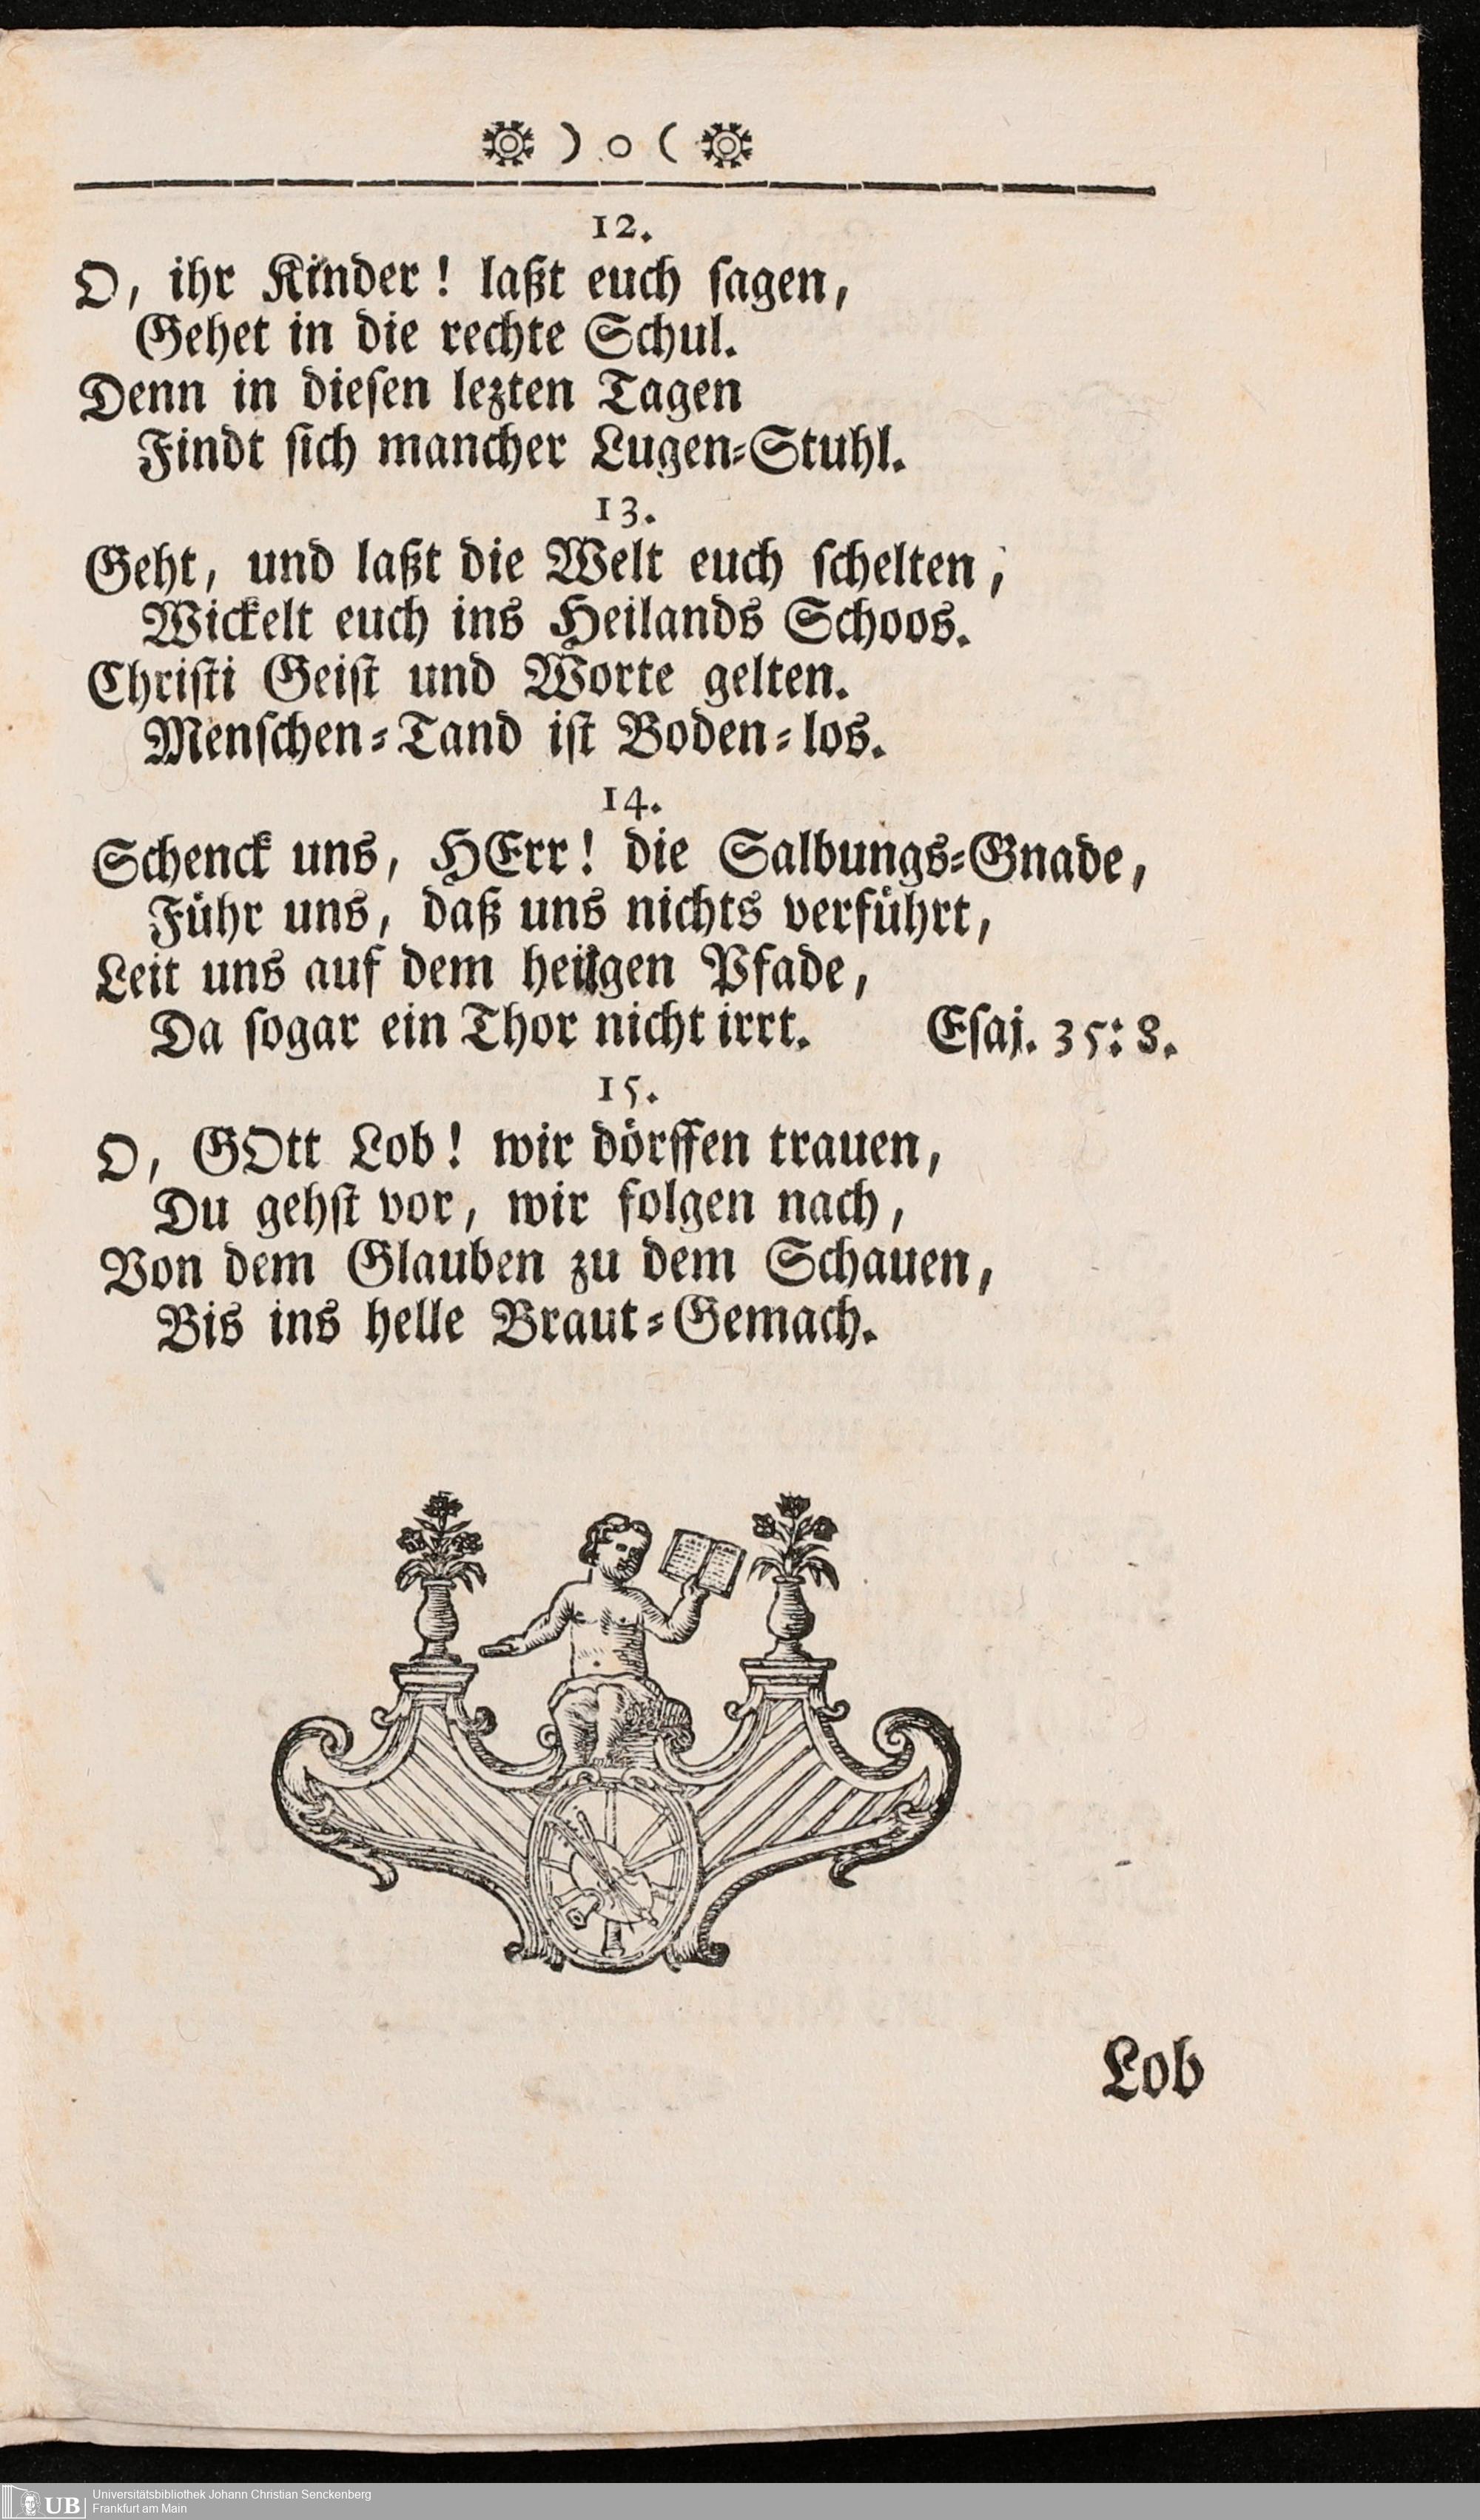 ) o (
12.
O, ihr Kinder! laßt euch ſagen,
Gehet in die rechte Schul.
Denn in dieſen lezten Tagen
Findt ſich mancher Lugen-Stuhl.
13.
Geht, und laßt die Welt euch ſchelten,
Wickelt euch ins Heilands Schoos.
Chriſti Geiſt und Worte gelten.
Menſchen-Tand iſt Boden-los.
14.
Schenck uns, HErr! die Salbungs-Gnade,
Führ uns, daß uns nichts verführt,
Leit uns auf dem heilgen Pfade,
Da ſogar ein Thor nicht irrt. Eſaj. 35: 8.
15.
O, GOtt Lob! wir dörffen trauen,
Du gehſt vor, wir folgen nach,
Von dem Glauben zu dem Schauen,
Bis ins helle Braut-Gemach.
Lob
UB
Universitätsbibliothek Johann Christian Senckenberg
Frankfurt am Main